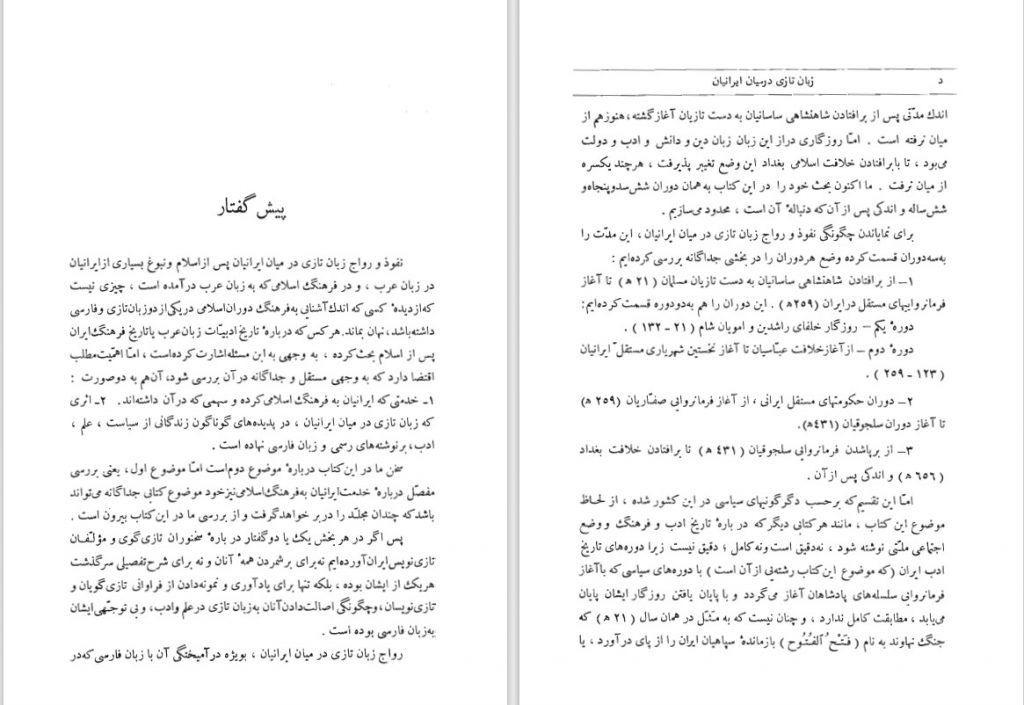 پیش گفتار
نفوذ و رواج زبان تازی در میان ایرانیان پس از اسلام ونبوغ بسیاری ازایرانیان
در زبان عرب ، و در فرهنگ اسلامی‌که به زبان عرب درآمده است ، چیزی نیست
که‌ازدیدهٔ کسی که اندك آشنایی به‌فرهنگ دوران‌اسلامی دریکی‌از دوزبان‌تازی و فارسی
داشته‌باشد، نهان بماند. هرکس که دربارهٔ تاریخ ادبیّات زبان‌عرب یاتاریخ فرهنگ‌ایران
پس از اسلام بحث‌کرده ، به وجهی به این مسئله‌اشارت کرده‌است ، امّا اهمّیت‌مطلب
اقتضا دارد که به وجهی مستقل و جداگانه درآن بررسی شود، آن‌هم به دوصورت :
۱ـ خدمتی که ایرانیان به فرهنگ اسلامی‌کرده و سهمی که درآن داشته‌اند. ۲ـ اثری
که زبان تازی در میان ایرانیان ، در پدیده‌های گوناگون زندگانی از سیاست ، علم ،
ادب، برنوشته‌های رسمی و زبان فارسی نهاده است .
سخن ما در این‌کتاب دربارهٔ موضوع دوم‌است امّا موضوع اول، یعنی بررسی
مفصّل دربارهٔ خدمت‌ایرانیان به‌فرهنگ‌اسلامی‌نیزخود موضوع کتابی جداگانه می‌تواند
باشدکه چندان مجلّد را در بر خواهدگرفت و از بررسی ما در این‌کتاب بیرون است .
پس اگر در هر بخش یك یا دوگفتار در بارهٔ سخنوران تازی‌گوی و مؤلّفان
تازی‌نویس‌ایران‌آورده‌ایم نه‌برای برشمردن همهٔ آنان و نه برای شرح‌تفصیلی سرگذشت
هریك از ایشان بوده ، بلکه تنها برای یادآوری و نمونه‌دادن از فراوانی تازی‌گویان و
تازی‌نویسان، وچگونگی اصالت‌دادن‌آنان به‌زبان تازی درعلم وادب، وبی توجّهی‌ایشان
به‌زبان فارسی بوده است .
رواج زبان تازی در میان ایرانیان ، بویژه درآمیختگی آن با زبان فارسی که‌در
د زبان تازی درمیان ایرانیان
اندك مدّتی پس از برافتادن شاهنشاهی ساسانیان به دست تازیان آغازگشته، هنوزهم از
میان نرفته است . امّا روزگاری دراز این زبان زبان دین و دانش و ادب و دولت
می‌بود ، تا بابرافتادن خلافت اسلامی بغداد این وضع تغییر پذیرفت ، هرچند یکسره
از میان نرفت . ما اکنون بحث خود را در این کتاب به همان دوران شش‌سدوپنجاه‌و
شش‌ساله و اندکی پس از آن که دنبالهٔ آن است ، محدود می‌سازیم .
برای نمایاندن چگونگی نفوذ و رواج زبان تازی در میان ایرانیان ، این مدّت را
به‌سه‌دوران قسمت‌کرده وضع هردوران را در بخشی جداگانه بررسی کرده‌ایم :
۱ـ از برافتادن شاهنشاهی ساسانیان به دست تازیان مسلمان (۲۱ ه‍) تا آغاز
فرمانرواییهای مستقل درایران (۲۵۹ه‍) . این دوران را هم به‌دودوره قسمت‌کرده‌ایم:
دورهٔ یکم – روزگار خلفای راشدین و امویان شام ( ۲۱ - ۱۳۲ ) .
دورهٔ دوم – ازآغازخلافت عبّاسیان تا آغاز نخستین شهریاری مستقلّ ایرانیان
( ۱۲۳ - ۲۵۹ ) .
۲ـ دوران حکومتهای مستقل ایرانی ، از آغاز فرمانروایی صفّاریان (۲۵۹ ه‍)
تا آغاز دوران سلجوقیان (۴۳۱ه‍).
۳ـ از برپاشدن فرمانروایی سلجوقیان (۴۳۱ ه‍) تا برافتادن خلافت بغداد
( ۶۵۶ ه‍ ) و اندکی پس ازآن .
امّا این تقسیم‌که برحسب دگرگونیهای سیاسی در این کشور شده ، از لحاظ
موضوع این کتاب ، مانند هرکتابی دیگرکه در بارهٔ تاریخ ادب و فرهنگ و وضع
اجتماعی ملّتی نوشته شود ، نه‌دقیق است ونه‌کامل ؛ دقیق نیست زیرا دوره‌های تاریخ
ادب ایران (که موضوع این‌کتاب رشته‌یی ازآن است ) با دوره‌های سیاسی که باآغاز
فرمانروایی سلسله‌های پادشاهان آغاز می‌گردد و با پایان یافتن روزگار ایشان پایان
می‌یابد ، مطابقت کامل ندارد ، و چنان نیست که به مَثَل در همان سال (۲۱ ه‍) که
جنگ نهاوند به نام ( فَتْحُ الفُتُوح ) بازماندهٔ سپاهیان ایران را از پای درآورد ، یا